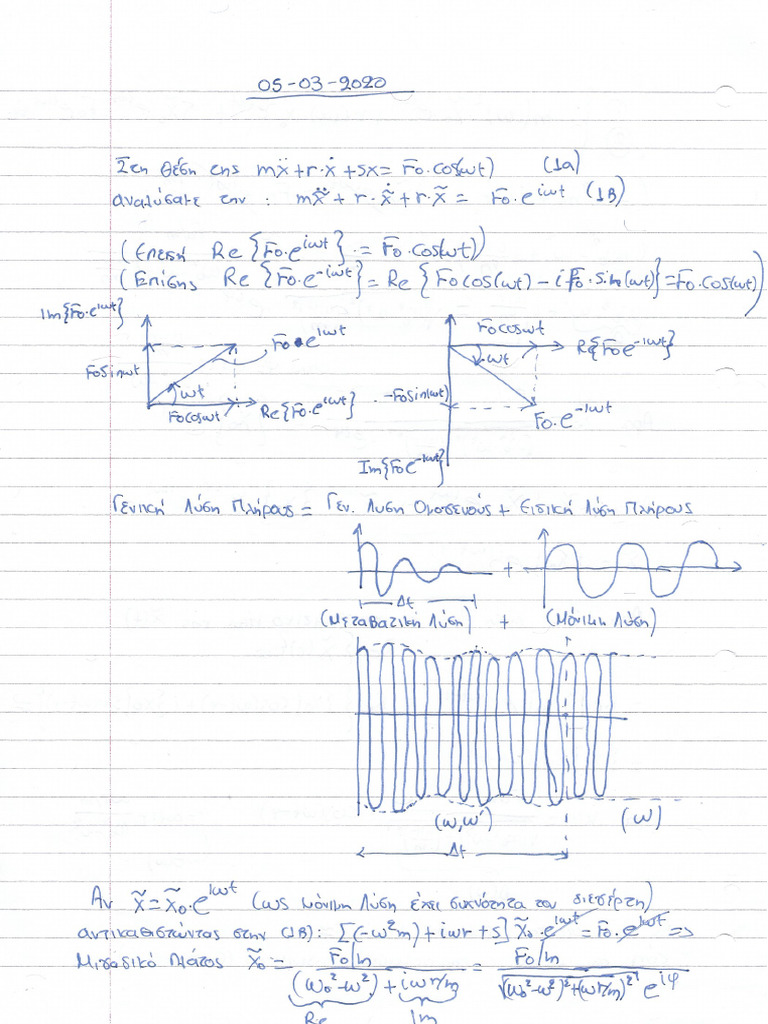 05-03-2020
Στη θέση της mẍ+r·ẋ+sx= F₀·cos(ωt) (1α)
αναλύσατε την : mx̃̈ + r·x̃̇ + r·x̃ = F₀·e^{iωt} (1β)
(Επειδή Re{F₀·e^{iωt}} = F₀·cos(ωt))
(Επίσης Re{F₀·e^{-iωt}} = Re{F₀cos(ωt) - iF₀·sin(ωt)} = F₀·cos(ωt))
Im{F₀·e^{iωt}}
F₀·e^{iωt}
F₀sinωt
ωt
F₀cosωt
Re{F₀·e^{iωt}}
F₀cosωt
Re{F₀e^{-iωt}}
ωt
-F₀sin(ωt)
F₀·e^{-iωt}
Im{F₀e^{-iωt}}
Γενική Λύση Πλήρους = Γεν. Λύση Ομογενούς + Ειδική Λύση Πλήρους
+
Δt
(Μεταβατική Λύση) + (Μόνιμη Λύση)
(ω,ω') (ω)
Δt
Αν x̃=x̃₀·e^{iωt} (ως μόνιμη λύση έχει συχνότητα του διεγέρτη)
αντικαθιστώντας στην (1β): [(-ω²m)+iωr+s] x̃₀·e^{iωt} = F₀·e^{iωt} =>
Μιγαδικό Πλάτος x̃₀ = (F₀/m)/((ω₀²-ω²)+iωr/m) = (F₀/m)/(√((ω₀²-ω²)²+(ωr/m)²) e^{iφ})
Re Im